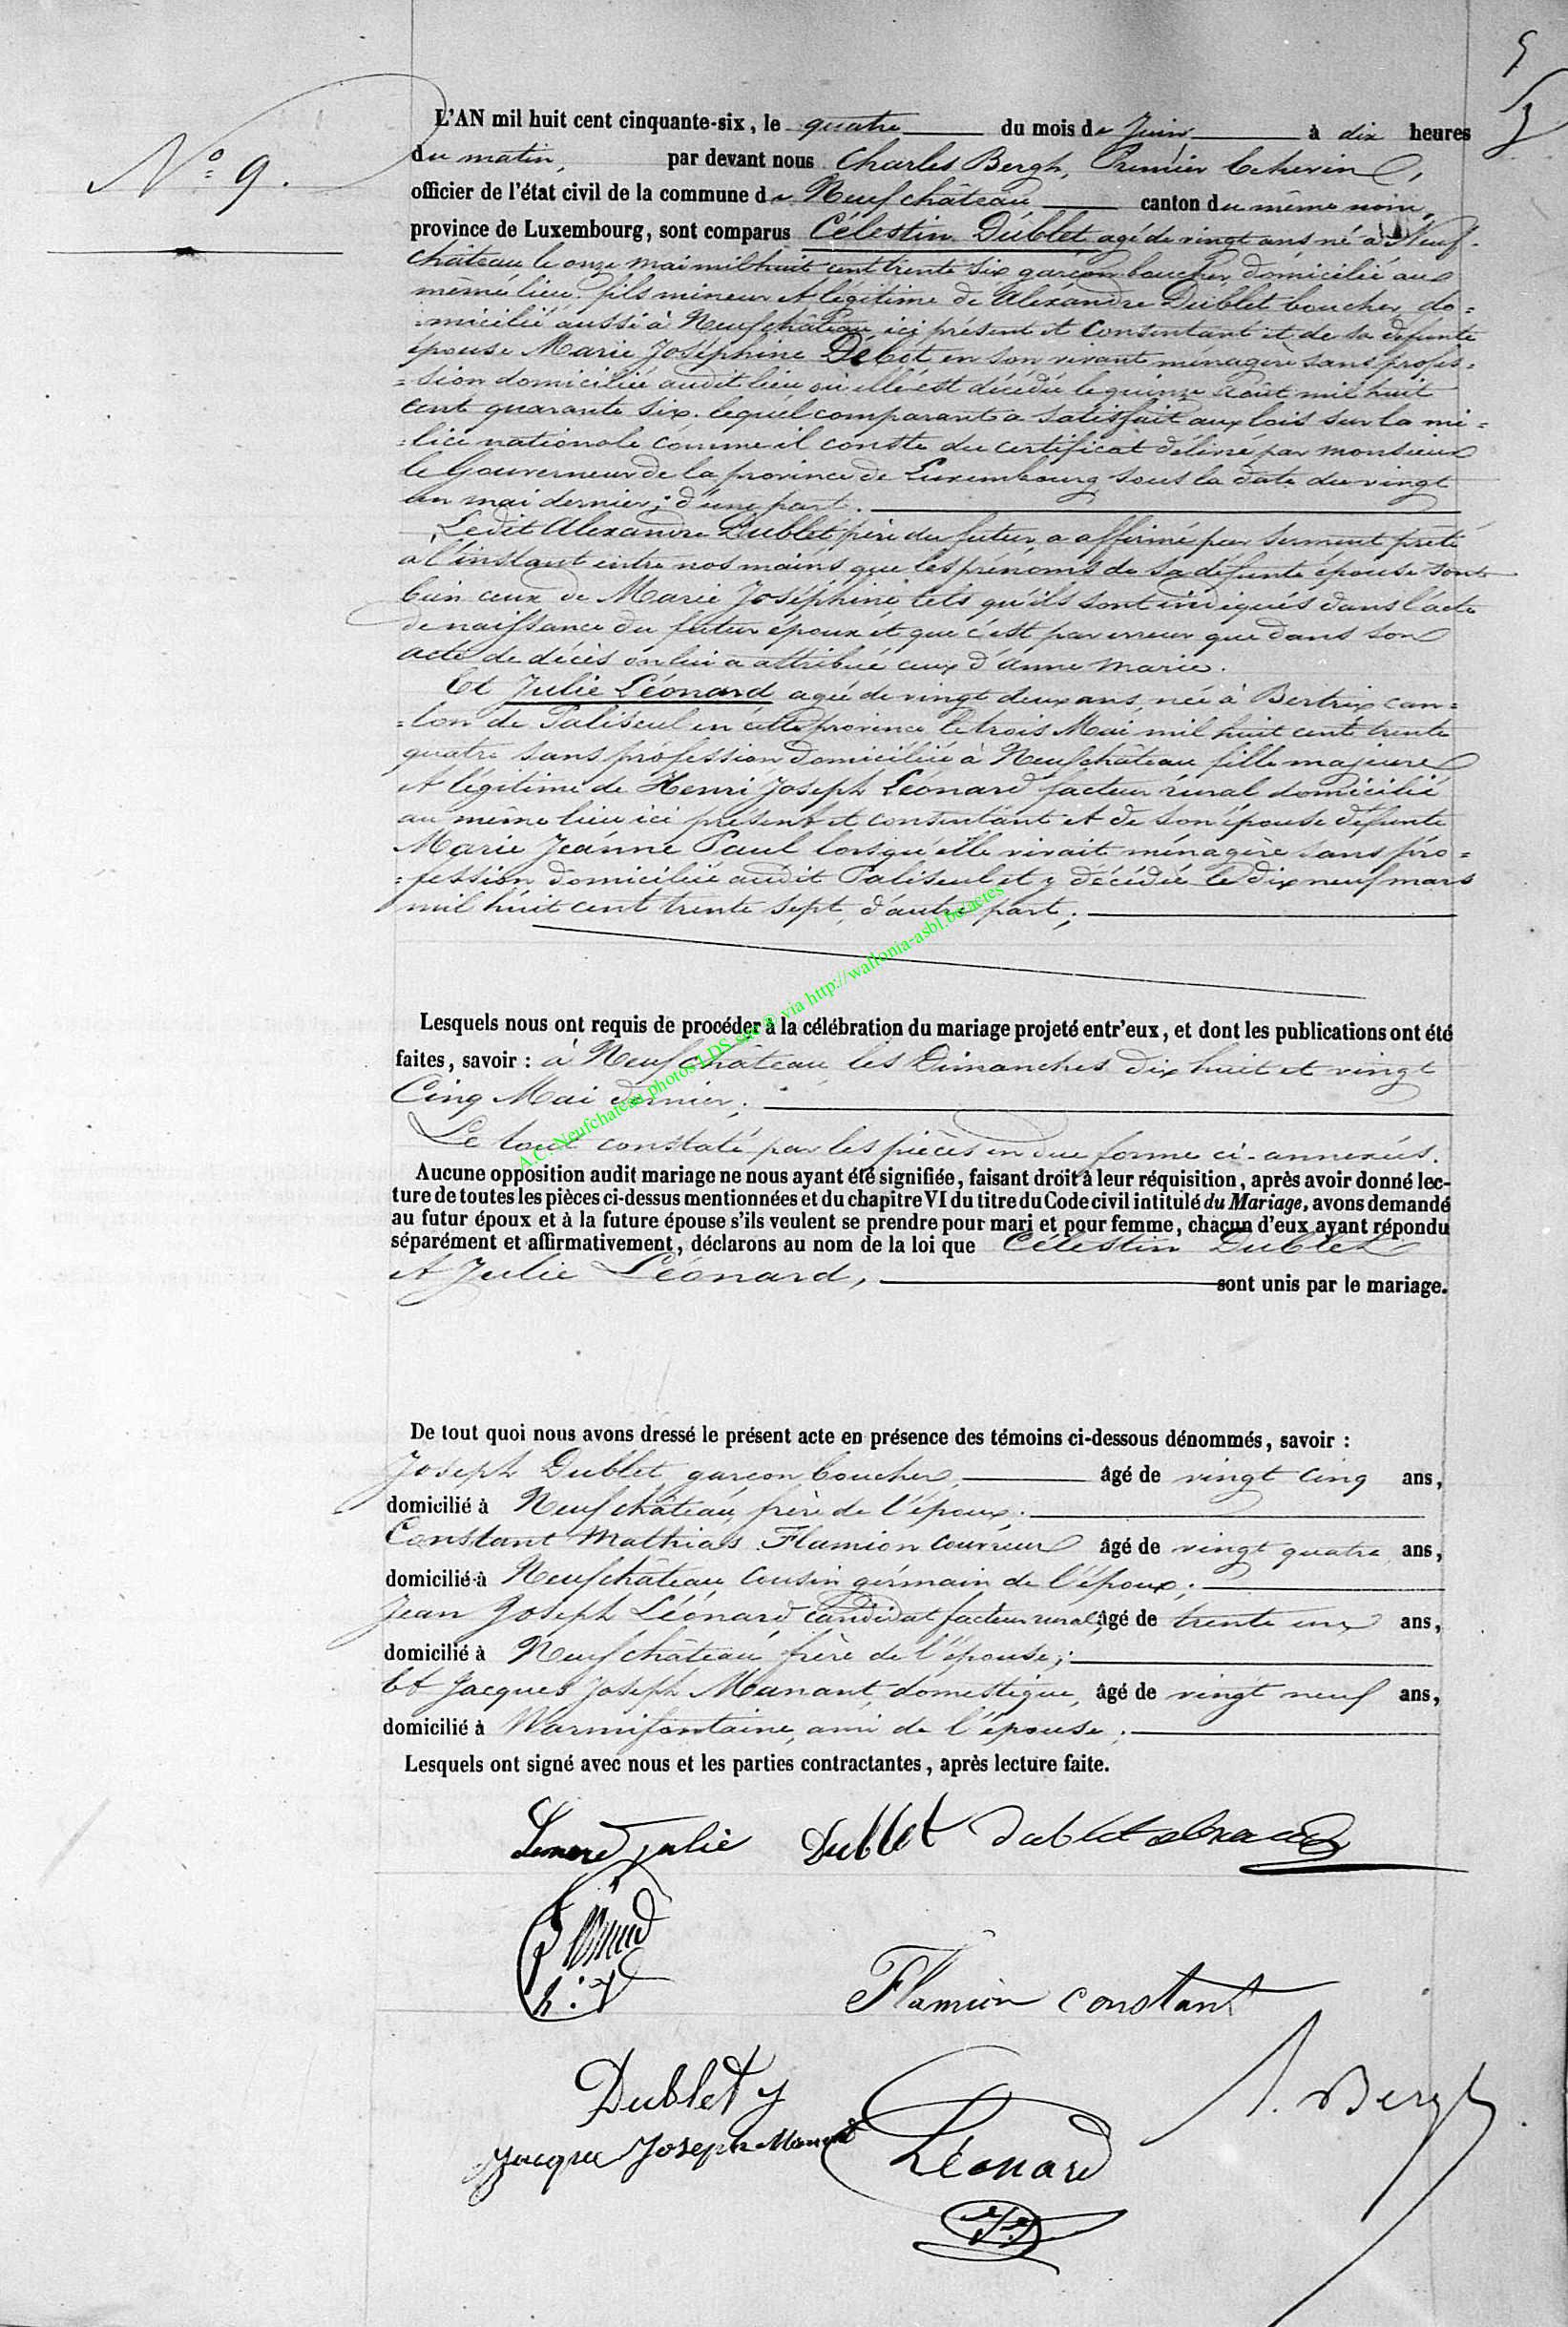 N° 9.
L'AN mil huit cent cinquante-six, le quatre du mois de Juin à dix heures
du matin, par devant nous Charles Bergh, Premier Echevin,
officier de l'état civil de la commune de Neufchâteau canton du même nom,
province de Luxembourg, sont comparus Célestin Dublet agé de vingt ans né à Neuf-
château le onze mai mil huit cent trente six garçon boucher, domicilié au
même lieu, fils mineur et légitime de Alexandre Dublet boucher do=
micilié aussi à Neufchâteau ici présent et consentant et de sa défunte
épouse Marie Joséphine Debot en son vivant ménagère sans profes=
=sion domiciliée audit lieu où elle est décédée le quinze Août mil huit
cent quarante six. lequel comparant a satisfait aux lois sur la mi=
=lice nationale comme il conste du certificat délivré par monsieur
le Gouverneur de la province de Luxembourg sous la date du vingt
un mai dernier; d'une part.
Ledit Alexandre Dublet père du futur, a affirmé par serment prêté
à l'instant entre nos mains que les prénoms de sa défunte épouse sont
bien ceux de Marie Joséphine tels qu'ils sont indiqués dans l'acte
de naissance du futur époux et que c'est par erreur que dans son
acte de décès on lui a attribué ceux d'anne marie.
Et Julie Léonard agée de vingt deux ans, née à Bertrix can=
=ton de Paliseul en cette province le trois Mai mil huit cent trente
quatre sans profession domiciliée à Neufchâteau fille majeure
et légitime de Henri Joseph Léonard facteur rural domicilié
au même lieu ici présent et consentant et de son épouse défunte
Marie Jeanne Paul lorsqu'elle vivait ménagère sans pro=
=fession domiciliée audit Paliseul et y décédée le dix neuf mars
mil huit cent trente sept, d'autre part;
Lesquels nous ont requis de procéder à la célébration du mariage projeté entr'eux, et dont les publications ont été
faites, savoir : à Neufchâteau les Dimanches dix huit et vingt
Cinq Mai dernier;
Le tout constaté par les pièces en due forme ci-annexées.
Aucune opposition audit mariage ne nous ayant été signifiée, faisant droit à leur réquisition, après avoir donné lec-
ture de toutes les pièces ci-dessus mentionnées et du chapitre VI du titre du Code civil intitulé du Mariage, avons demandé
au futur époux et à la future épouse s'ils veulent se prendre pour mari et pour femme, chacun d'eux ayant répondu
séparément et affirmativement, déclarons au nom de la loi que Célestin Dublet
et Julie Léonard, sont unis par le mariage.
De tout quoi nous avons dressé le présent acte en présence des témoins ci-dessous dénommés, savoir :
Joseph Dublet garçon boucher, âgé de vingt cinq ans,
domicilié à Neufchâteau, frère de l'époux.
Constant Mathias Flamion couvreur âgé de vingt quatre ans,
domicilié à Neufchâteau cousin germain de l'époux;
Jean Joseph Léonard candidat facteur rural, âgé de trente un ans,
domicilié à Neufchâteau frère de l'épouse;
Et Jacques Joseph Manant domestique, âgé de vingt neuf ans,
domicilié à Warmifontaine, ami de l'épouse;
Lesquels ont signé avec nous et les parties contractantes, après lecture faite.
Julie Dublet Dublet
Flamion constant
Dublet J Bergh
Jacque Joseph Manant Léonard
A.C. Neufchateau photos LDS via http://wallonia-asbl.be/actes